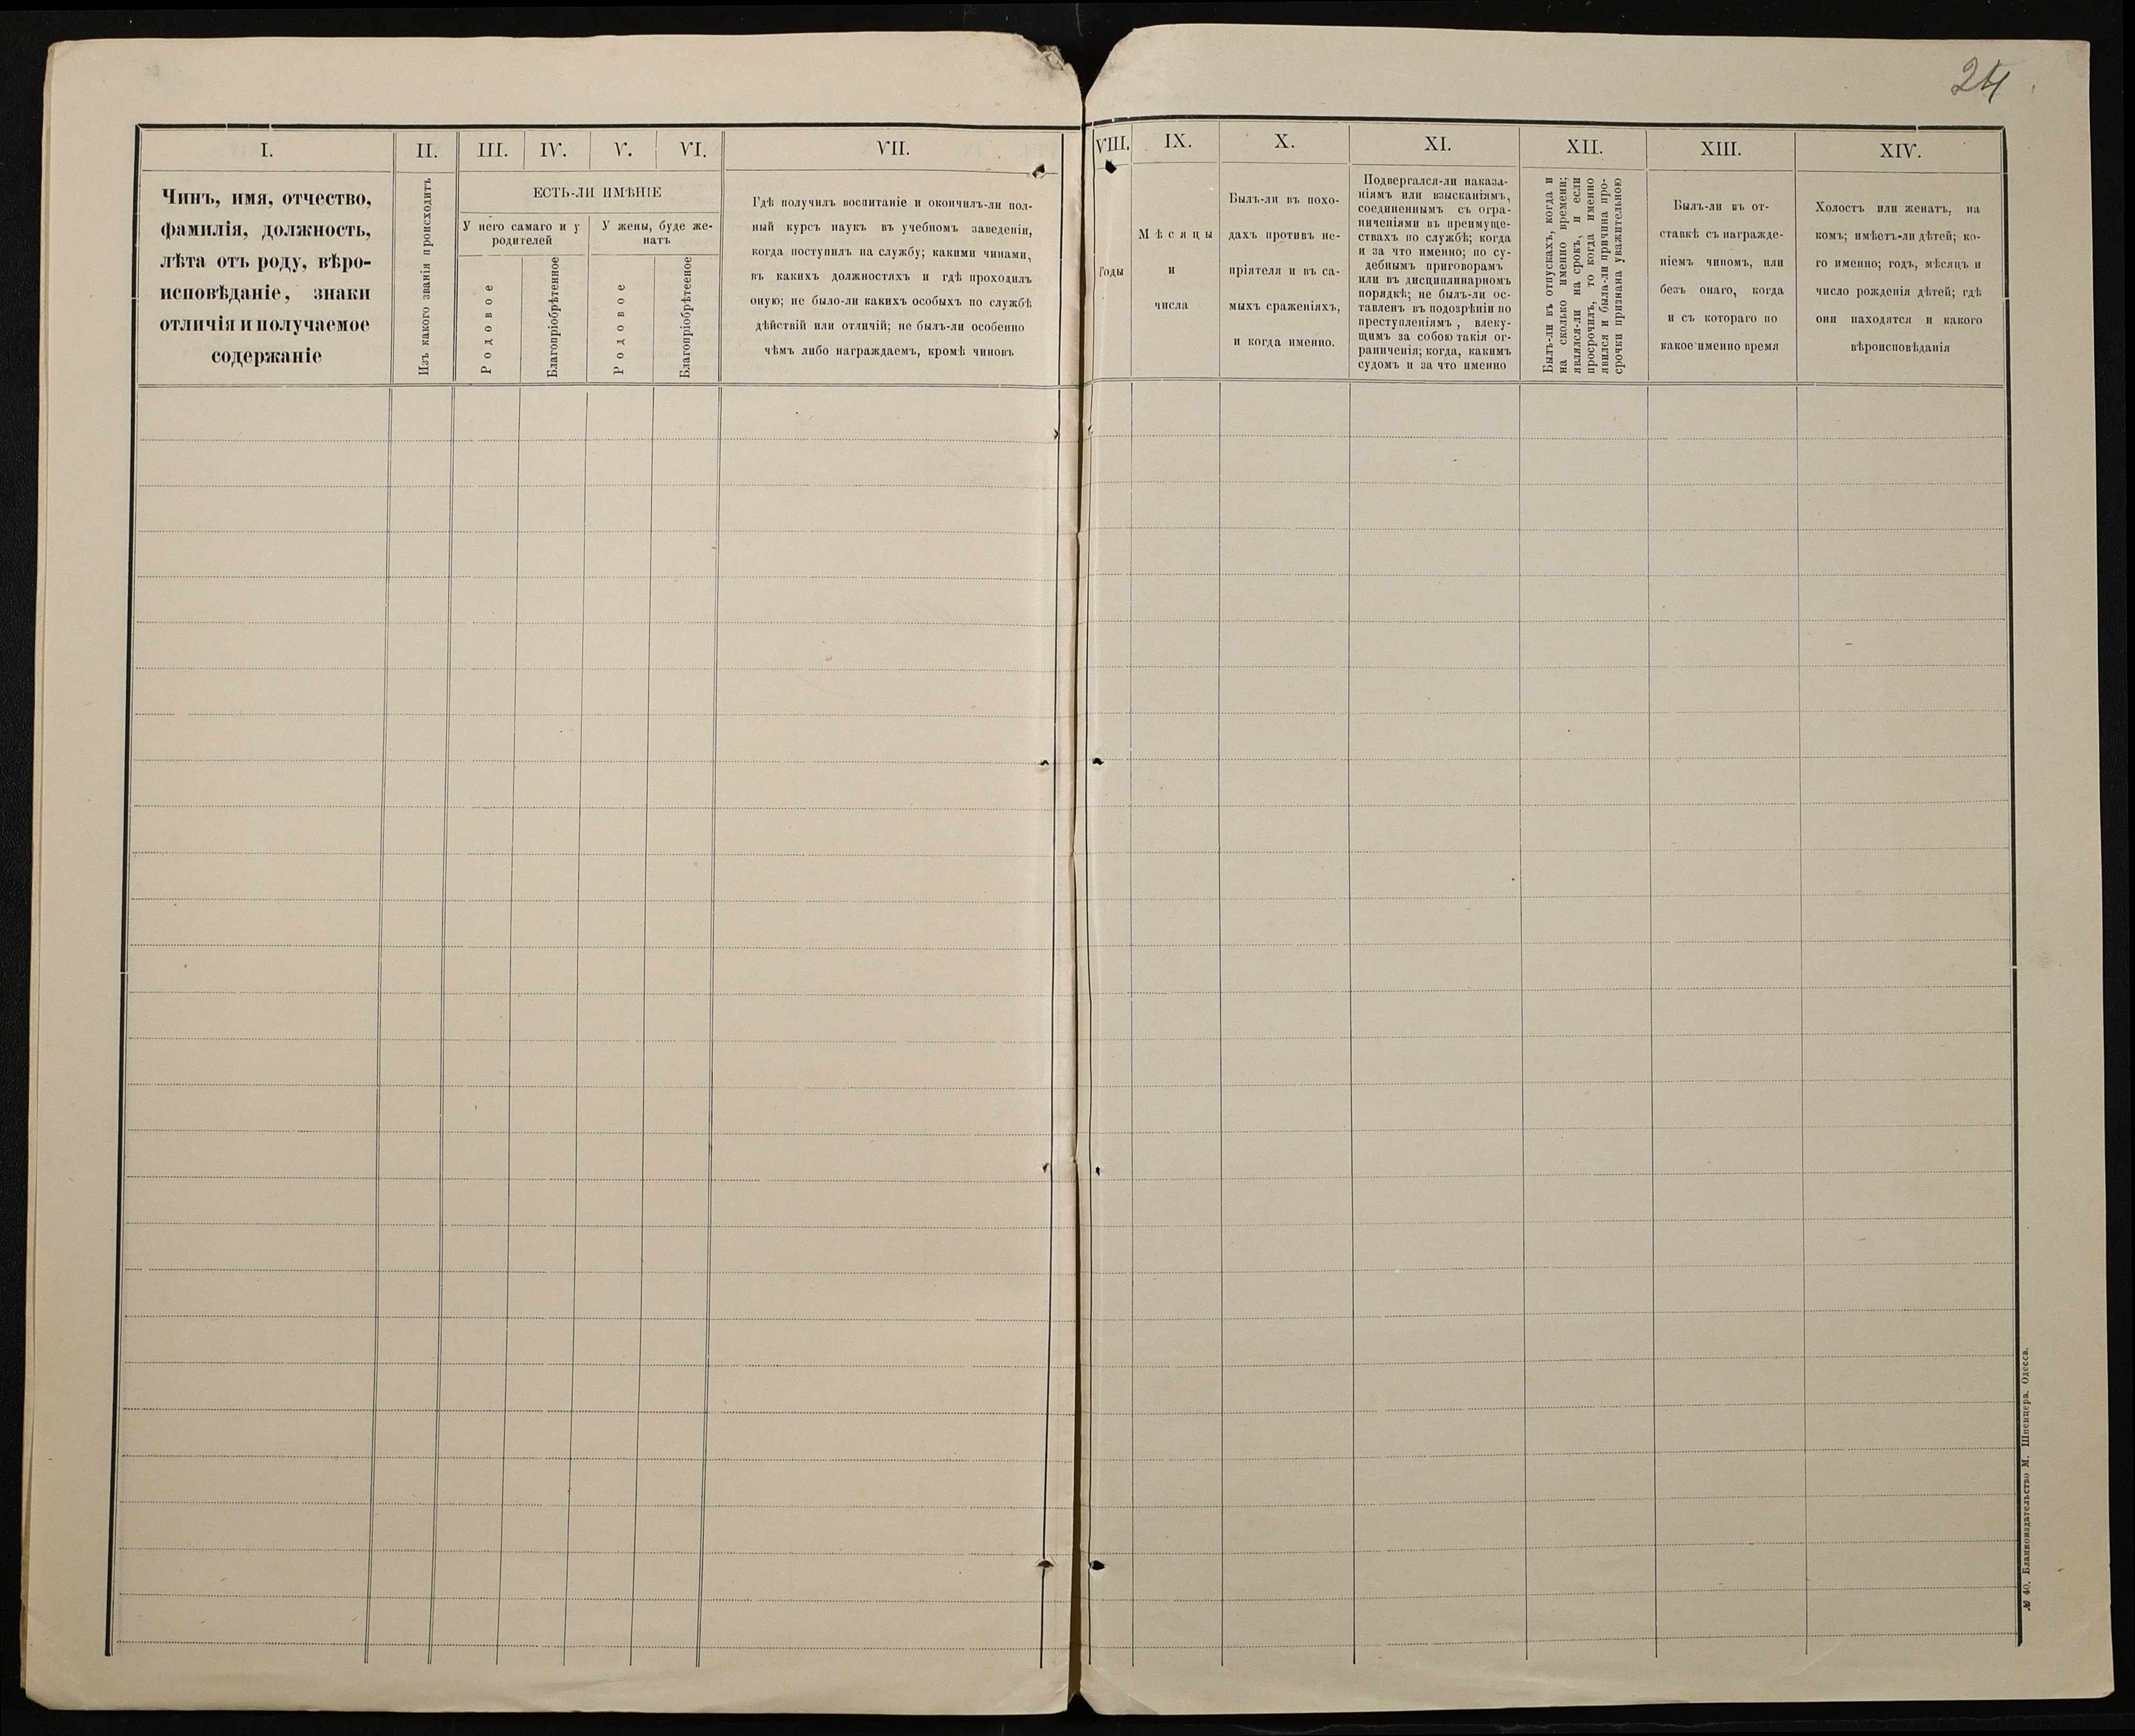 24
I.
Чинъ, имя, отчество,
фамилія, должность,
лѣта отъ роду, вѣро-
исповѣданіе, знаки
отличія и получаемое
содержаніе
II.
Изъ какого званія происходитъ
III. IV. V. VI.
ЕСТЬ-ЛИ ИМѢНІЕ
У него самаго и у
родителей
У жены, буде же-
натъ
Родовое
Благопріобрѣтенное
Родовое
Благопріобрѣтеное
VII.
Гдѣ получилъ воспитаніе и окончилъ-ли пол-
ный курсъ наукъ въ учебномъ заведеніи,
когда поступилъ на службу; какими чинами,
въ какихъ должностяхъ и гдѣ проходилъ
оную; не было-ли какихъ особыхъ по службѣ
дѣйствій или отличій; не былъ-ли особенно
чѣмъ либо награждаемъ, кромѣ чиновъ
VIII.
Годы
IX.
Мѣсяцы
и
числа
X.
Былъ-ли въ похо-
дахъ противъ не-
пріятеля и въ са-
мыхъ сраженіяхъ,
и когда именно.
XI.
Подвергался-ли наказа-
ніямъ или взысканіямъ,
соединеннымъ съ огра-
ниченіями въ преимуще-
ствахъ по службѣ; когда
и за что именно; по су-
дебнымъ приговорамъ
или въ дисциплинарномъ
порядкѣ; не былъ-ли ос-
тавленъ въ подозрѣніи по
преступленіямъ, влеку-
щимъ за собою такія ог-
раниченія; когда, какимъ
судомъ и за что именно
XII.
Былъ-ли въ отпускахъ, когда и
на сколько именно времени;
являлся-ли на срокъ, и если
просрочилъ, то когда именно
явился и была-ли причина про-
срочки признана уважительною
XIII.
Былъ-ли въ от-
ставкѣ съ награжде-
ніемъ чиномъ, или
безъ онаго, когда
и съ котораго по
какое именно время
XIV.
Холостъ или женатъ, на
комъ; имѣетъ-ли дѣтей; ко-
го именно; годъ, мѣсяцъ и
число рожденія дѣтей; гдѣ
они находятся и какого
вѣроисповѣданія
№ 40. Бланкоиздательство М. Шпенцера. Одесса.